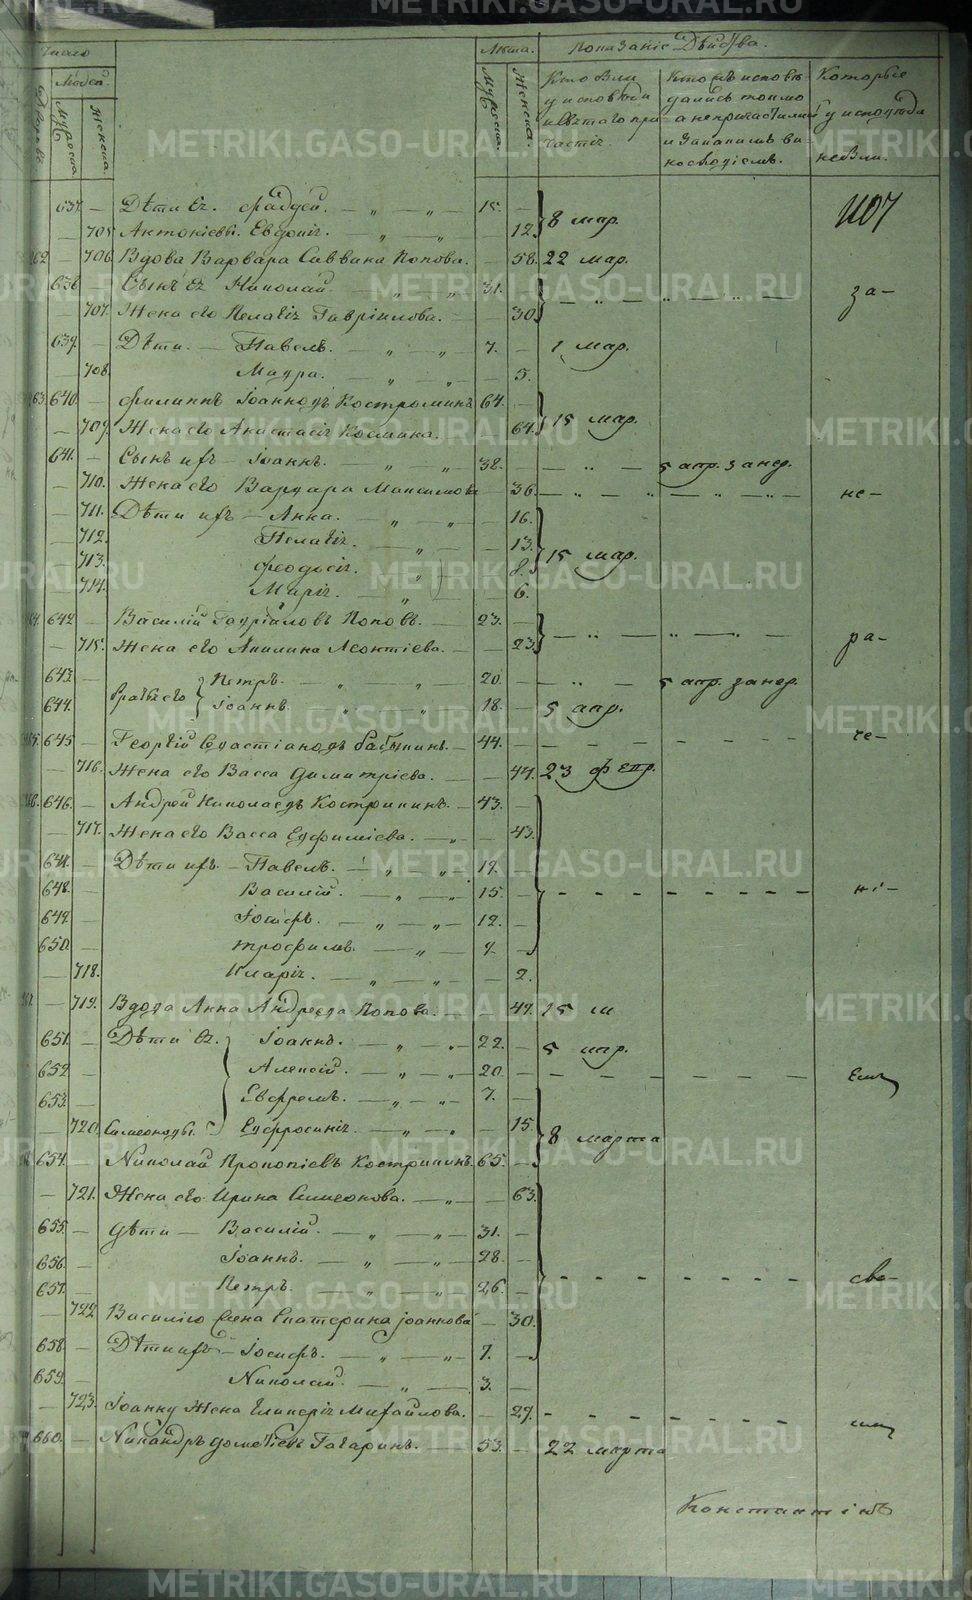 Число
Людей
Дворовъ
Мужеска
Женска
Лѣта.
Мужеска.
Женска.
Показаніе Дѣйства.
Кто были у исповѣди и святаго причастія
Кто исповѣдались токмо а не причастились и за какимъ винословіемъ.
Которые у исповѣди не были.
1107
637. — Дѣти ея. Фаддей. — „ — „ — 15. —
— 705 Антоніевы. Евдокія. — „ — „ — 12. 8 мар.
706 Вдова Варвара Саввина Попова. — 58. 22 мар.
638 — Сынъ ея Николай — „ „ 31. — — „ — „ — за-
— 707. Жена его Пелагія Гавріилова. — — 30.
639. — Дѣти. — Павелъ. — „ — „ — 7. — 1 мар.
— 708. Мавра. — „ — „ — 5.
63. 640. — Филиппъ Іоанновъ Костроминъ 64. —
— 709. Жена его Анастасія Космина. — 64. 15 мар.
641. — Сынъ ихъ — Іоаннъ. — „ — „ — 38. — — „ — 5 апр. за нед.
— 710. Жена его Варвара Максимова — 36. — „ — „ — не-
— 711. Дѣти ихъ — Анна. — „ — „ — 16.
— 712. Пелагія. — „ — 13.
— 713. Феодосія. — „ — 8. 15 мар.
— 714. Марія. — „ — 6.
642. — Василій Гавріиловъ Поповъ. — 23. — — „ — „ — „ — ра-
— 715. Жена его Акилина Леонтіева. — — 23.
643. — Братья его Петръ. — „ — „ 20. — — „ — 5 апр. за нед.
644. — Іоаннъ. „ „ 18. — 5 апр.
645 — Георгій Савастіановъ Бабкинъ. — 44. — — — — че-
— 716. Жена его Васса Димитріева. — — 44. 23 февр.
646. — Андрей Николаевъ Кострикинъ. — 43. —
— 717. Жена его Васса Евфиміева. — „ — — 43.
647. — Дѣти ихъ — Павелъ. — „ — „ — 19. —
648. — Василій. — „ — „ — 15. — — — — ні-
649. — Іосифъ. — „ — „ — 12. —
650. — Трофимъ. — „ — 9. —
— 718. Марія. — „ — „ — 2.
— 719. Вдова Анна Андреева Попова. — — 49. 15 м
651. — Дѣти ея. Іоаннъ. — „ — „ — 22. — 5 апр.
652 — Алексій. — „ — „ — 20. — — — — емъ
653. — Евфремъ. — „ — „ — 7. —
— 720. Симеоновы. Евфросинія. — „ — „ 15. 8 марта
654. — Николай Прокопіевъ Кострикинъ. 65. —
— 721. Жена его Ирина Симеонова. — „ — 63.
655. — Дѣти — Василій. — „ — „ — 31. —
656. — Іоаннъ. — „ — „ — 28. —
657. — Петръ. — „ — „ — 26. — — — — сво-
— 722 Василію Жена Екатерина Іоаннова — 30.
658. — Дѣти ихъ — Іосифъ. — „ — „ — 7. —
659. — Николай. — „ — 3. —
— 723. Іоанну Жена Гликерія Михайлова. — 29. — — — имъ
660. — Никандръ Дометіевъ Гагаринъ. — 53. — 22 марта
Константінъ
METRIKI.GASO-URAL.RU